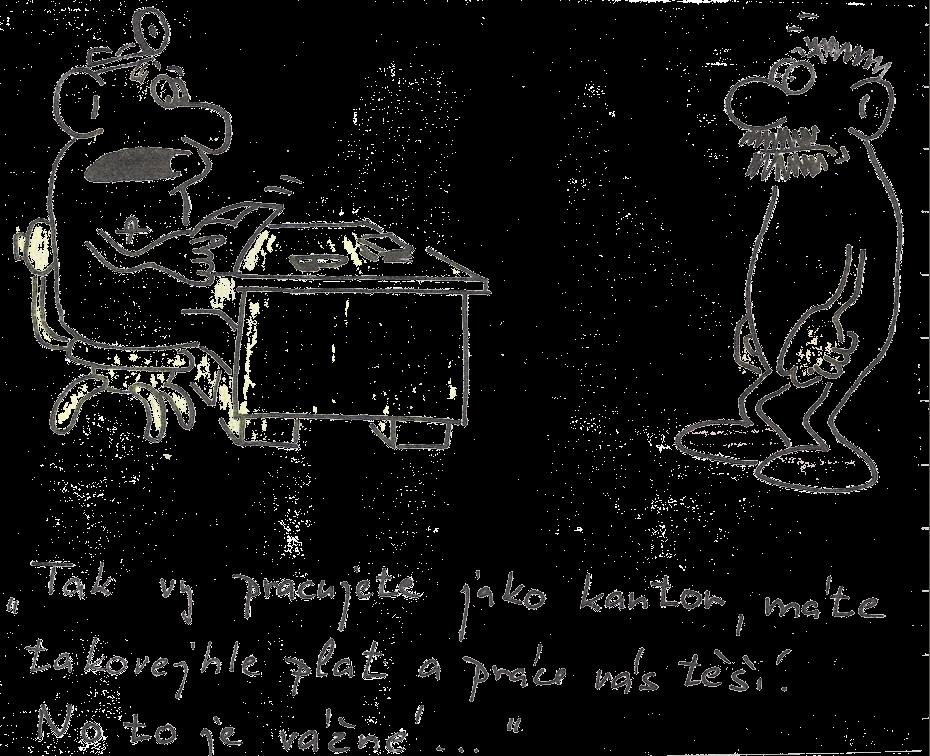 „Tak vy pracujete jako kantor, máte
takovejhle plat a práce vás těší!
No to je vážné ... "